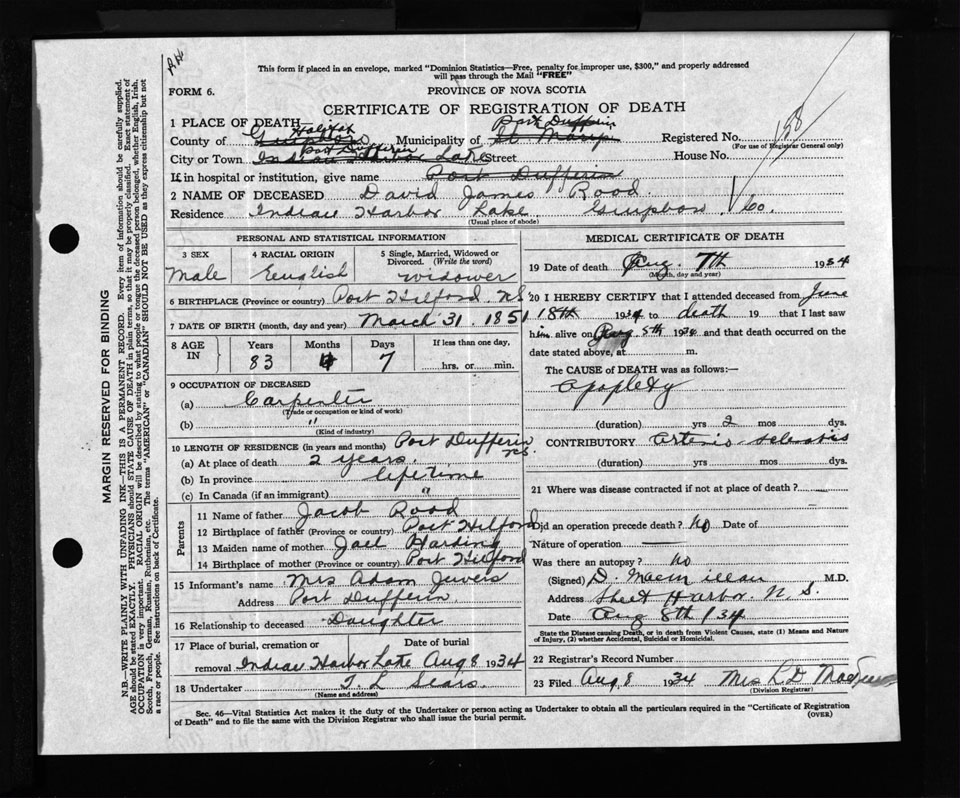 This form if placed in an envelope, marked "Dominion Statistics—Free, penalty for improper use, $300," and properly addressed
will pass through the Mail "FREE"
FORM 6.
PROVINCE OF NOVA SCOTIA
CERTIFICATE OF REGISTRATION OF DEATH
1 PLACE OF DEATH— Halifax Port Dufferin
County of Municipality of Registered No. 158
(For use of Registrar General only)
Port Dufferin
City or Town Indian Harbor Lake Street House No.
If in hospital or institution, give name Port Dufferin
2 NAME OF DECEASED David James Rood
Residence Indian Harbor Lake Co.
(Usual place of abode)
PERSONAL AND STATISTICAL INFORMATION
3 SEX 4 RACIAL ORIGIN 5 Single, Married, Widowed or Divorced. (Write the word)
Male English widower
6 BIRTHPLACE (Province or country) Port Hilford. NS
7 DATE OF BIRTH (month, day and year) March 31. 1851
8 AGE IN Years Months Days If less than one day,
83 4 7 hrs. or min.
9 OCCUPATION OF DECEASED
(a) Carpenter
(Trade or occupation or kind of work)
(b) "
(Kind of industry)
10 LENGTH OF RESIDENCE (in years and months) Port Dufferin NS.
(a) At place of death 2 years.
(b) In province lifetime
(c) In Canada (if an immigrant) "
Parents
11 Name of father Jacob Rood
12 Birthplace of father (Province or country) Port Hilford
13 Maiden name of mother Jael Harding
14 Birthplace of mother (Province or country) Port Hilford
15 Informant's name Mrs Adam
Address Port Dufferin.
16 Relationship to deceased Daughter
17 Place of burial, cremation or Date of burial
removal Indian Harbor Lake Aug 8 1934
18 Undertaker T. L Sears.
(Name and address)
MEDICAL CERTIFICATE OF DEATH
19 Date of death Aug. 7th 1934
(Month, day and year)
20 I HEREBY CERTIFY that I attended deceased from June
18th 1934 to death 19 that I last saw
him alive on Aug 5th 1934 and that death occurred on the
date stated above, at m.
The CAUSE of DEATH was as follows:—
Apoplexy
(duration) yrs 2 mos dys.
CONTRIBUTORY Arterio-sclerosis
(duration) yrs mos dys.
21 Where was disease contracted if not at place of death?
Did an operation precede death? No Date of
Nature of operation
Was there an autopsy? No
(Signed) D. Macmillan M.D.
Address Sheet Harbor. N. S.
Date Aug 8th /34
State the Disease causing Death, or in death from Violent Causes, state (1) Means and Nature
of Injury, (2) whether Accidental, Suicidal or Homicidal.
22 Registrar's Record Number
23 Filed Aug 8 1934 Mrs K D
(Division Registrar)
Sec. 46—Vital Statistics Act makes it the duty of the Undertaker or person acting as Undertaker to obtain all the particulars required in the "Certificate of Registration
of Death" and to file the same with the Division Registrar who shall issue the burial permit. (OVER)
MARGIN RESERVED FOR BINDING
N.B.—WRITE PLAINLY WITH UNFADING INK—THIS IS A PERMANENT RECORD. Every item of information should be carefully supplied.
AGE should be stated EXACTLY. PHYSICIANS should STATE CAUSE OF DEATH in plain terms, so that it may be properly classified. Exact statement of
OCCUPATION is very important. RACIAL ORIGIN will be described by stating to what people or tongue the deceased person belonged, whether English, Irish,
Scotch, French, German, Russian, Ruthenian, etc. The terms "AMERICAN" or "CANADIAN" SHOULD NOT BE USED as they express citizenship but not
a race or people. See instructions on back of Certificate.